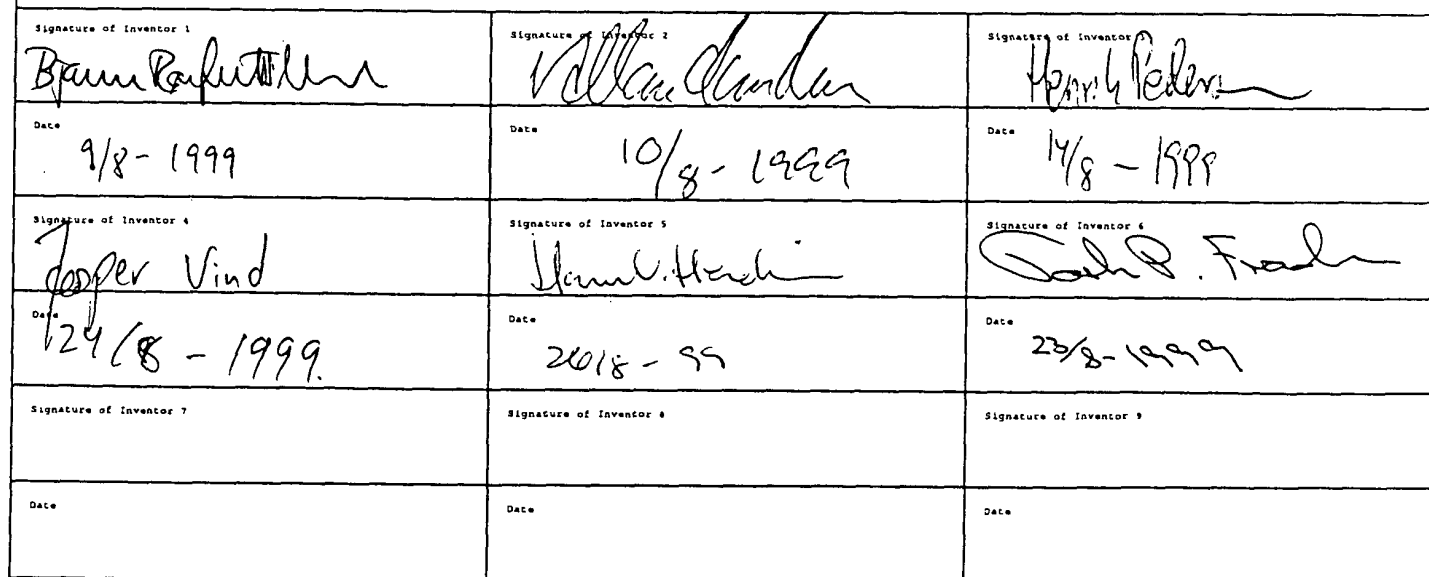 Signature of Inventor 1
Signature of Inventor 2
Signature of Inventor 3
Henrik Pedersen
Date
9/8 - 1999
Date
10/8 - 1999
Date
/8 - 1999
Signature of Inventor 4
Jesper Vind
Signature of Inventor 5
Signature of Inventor 6
Date
24/8 - 1999.
Date
/8 - 99
Date
23/8 - 1999
Signature of Inventor 7
Signature of Inventor 8
Signature of Inventor 9
Date
Date
Date